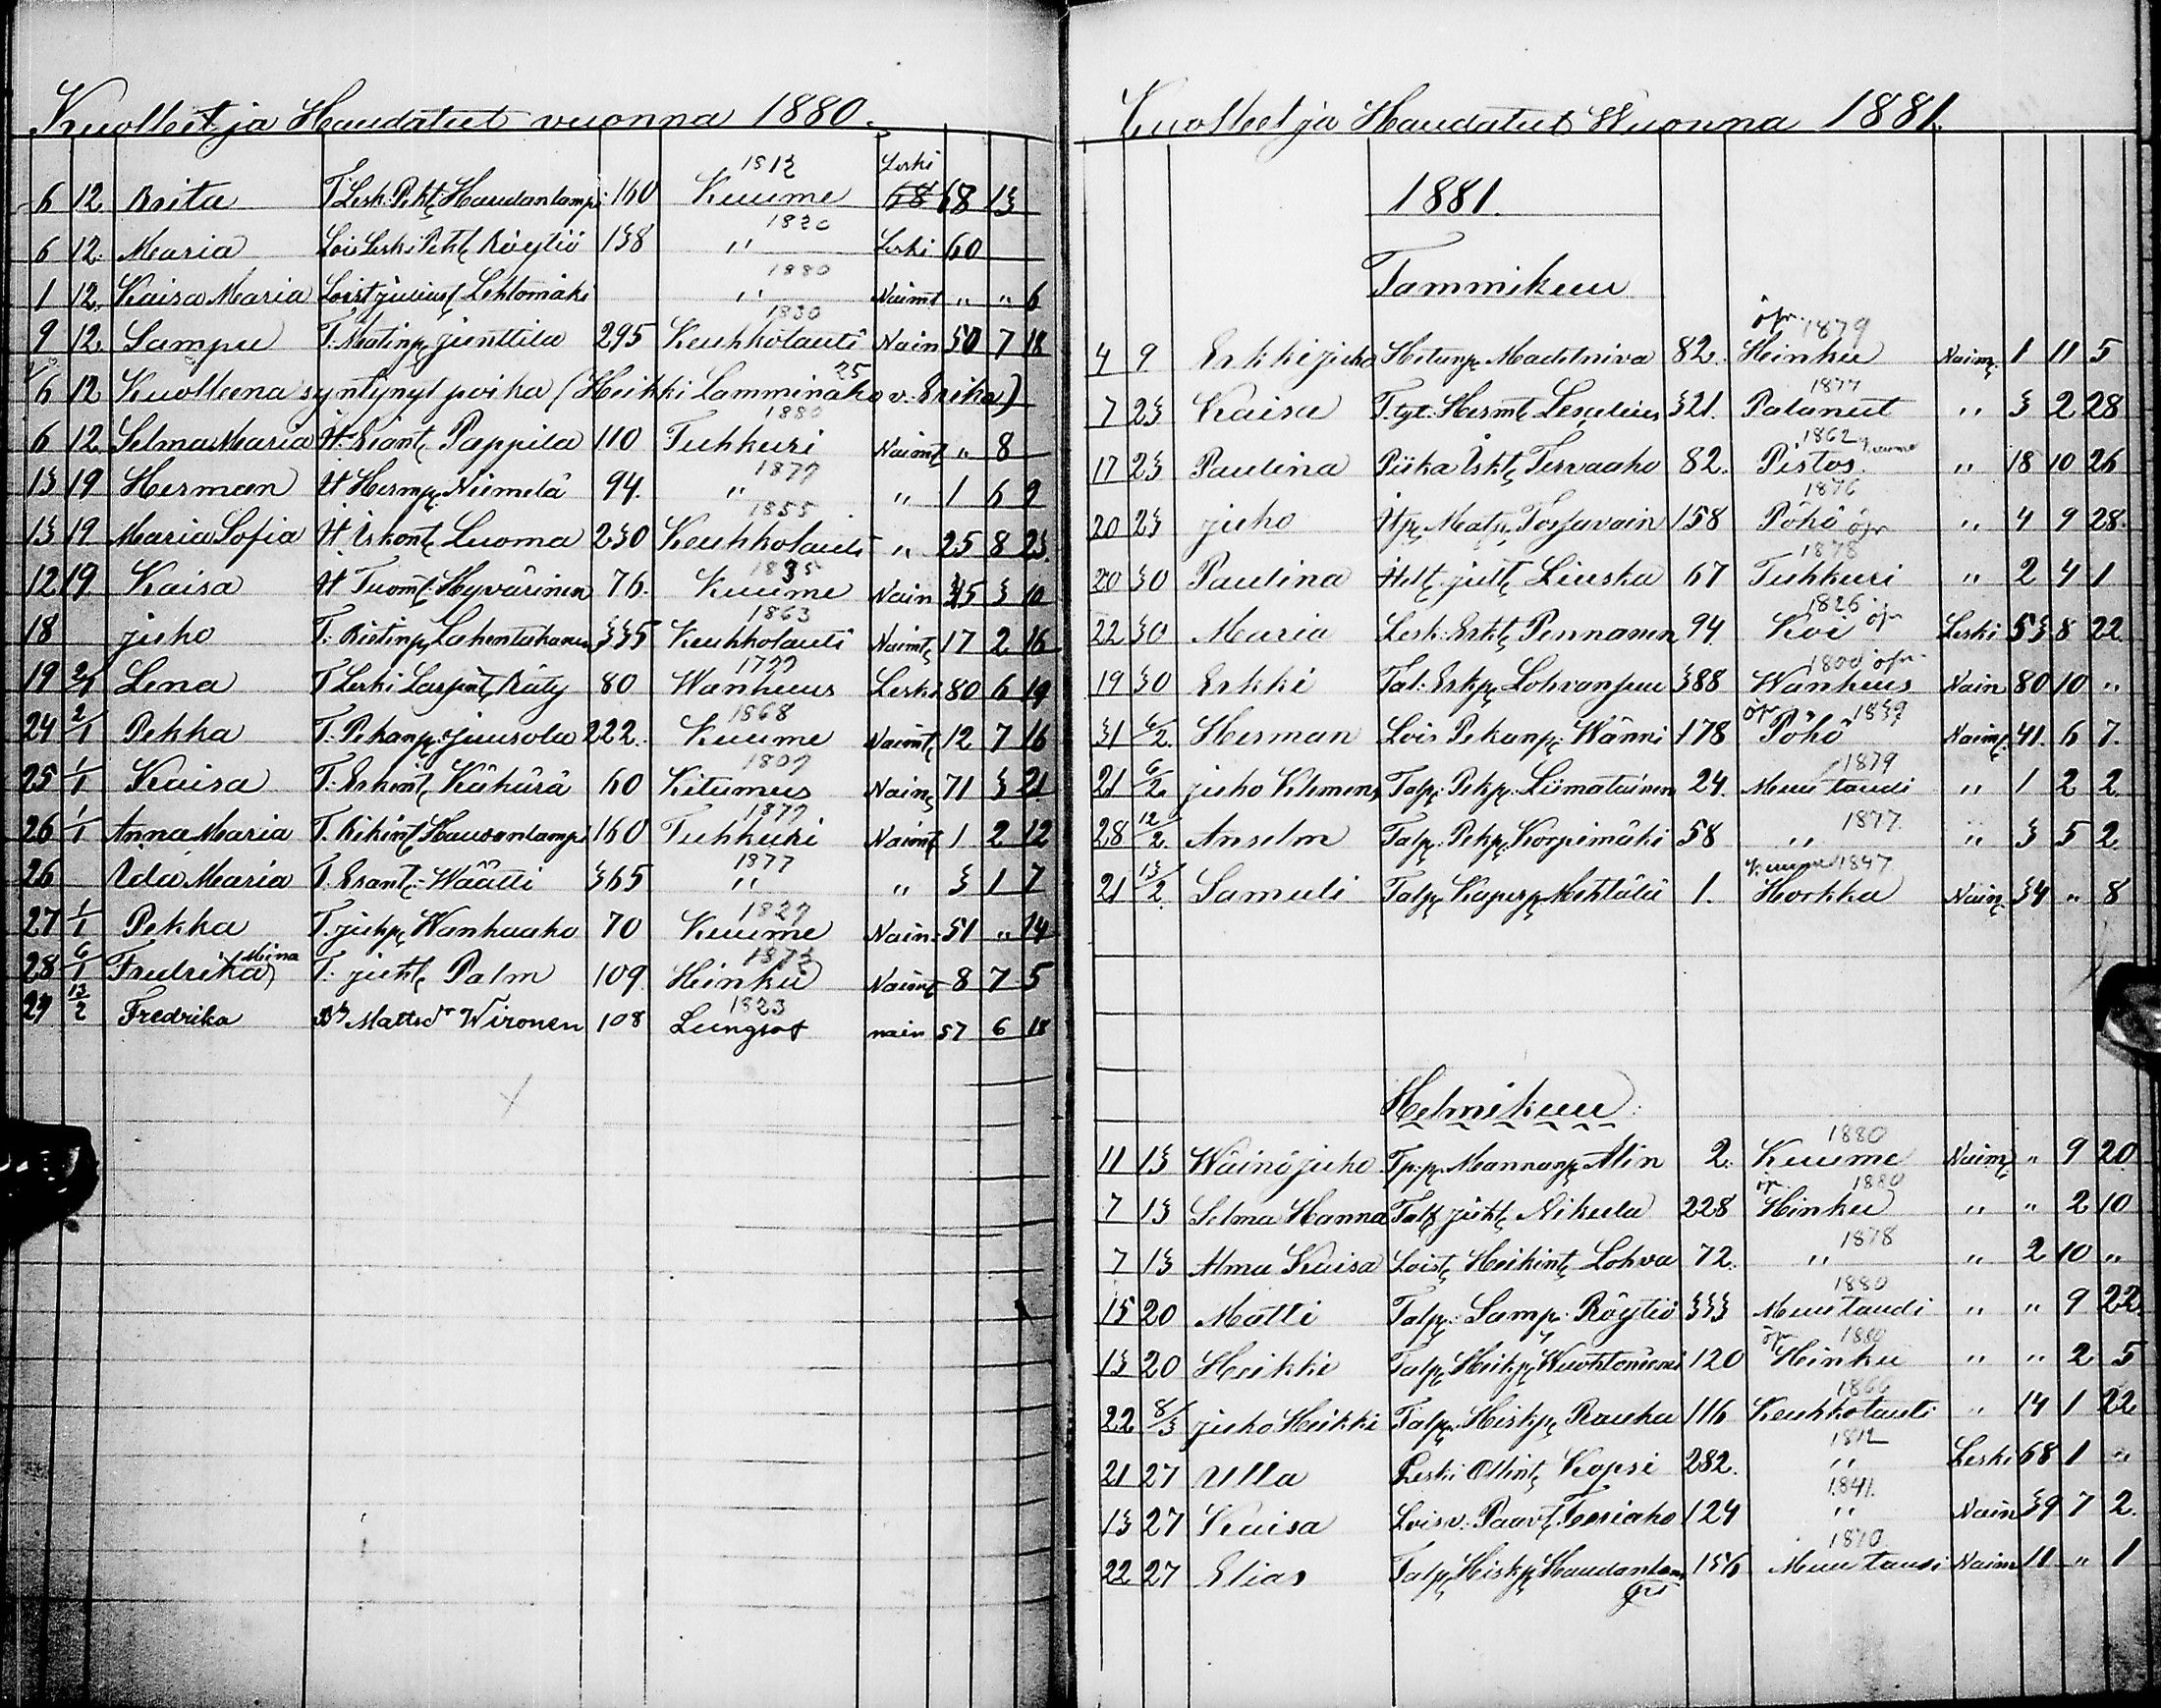 Kuolleet ja Haudatut vuonna 1880.
1812 Leski
6 12. Brita T. Lesk. Pekt. Haudanlampi 160 Kuume 68 68 13
1820
6 12. Maria Lois Leski Pekt. Röytiö 138 " Leski 60
1880
1 12. Kaisa Maria Loist juliust Lehtomäki " Naimt " " 6
1830
9 12. Sampu T. Matinp. junttila 295 Keuhkotauti Nain 50 7 18
25
6 12 Kuolleena syntynyt poika (Heikki Lamminaho v. Erika)
1880
6 12. Selma Maria It. Kiant. Pappila 110 Tuhkuri Naimt " 8
1879
13 19 Herman It Hermp. Niimelä 94. " " 1 6 9
1855
13 19 Maria Sofia It. Erkont. Luoma 230 Keuhkotauti " 25 8 23.
1835
12 19 Kaisa It Tuomt. Hyvärinen 76. Kuume Nain 45 3 10
1863
18 juho T. Ristinp. Lahentakanen 335 Keuhkotauti Naimt 17 2 16
1799
19 2/1 Lena T Leski Lasse Räty 80 Wanhuus Leski 80 6 19
1868
24 2/1 Pekka T. Pekanp. juusola 222. Kuume Naimt 12 7 16
1809
25 1/1 Kaisa T. Erkint. Kähärä 60 Kitumus Nain 71 3 21
1879
26 1/1 Anna Maria T. Rikint Hauvanlampi 160 Tuhkuri Naimt 1 2 12
1877
26 Ida Maria T. Erant. Wäätti 365 " " 3 1 7
1829
27 1/1 Pekka T. juhp. Wanhaaho 70 Kuume Nain 51 " 14
Miina 1872
28 6/1 Fredrika T. juht. Palm 109. Heinku Naimt 8 7 5
1823
29 13/2 Fredrika Matts dr Wironen 108 Lungsot nain 57 6 18
Kuolleet ja Haudatut Wuonna 1881.
1881.
Tammikuu
öfr. 1879
4 9 Erkki juho Hetunp. Madetniva 82. Heinku Naim. 1 11 5
1877
7 23 Kaisa T. tyt. Hermt. Leskelius 321. Palanut " 3 2 28
1862 Kuume
17 23 Paulina Piika Erkt. Tervaaho 82. Pistos. " 18 10 26
1876
20 23 juho Itp. Matp. Torjavain 158 Pöhö öfr " 4 9 28.
1878
20 30 Paulina Itslt. jult. Liuska 67 Tuhkuri " 2 4 1
1826 öfr
22 30 Maria Lesk. Erkt. Pennanen 94. Koi Leski 53 8 22
1800 öfr
19 30 Erkki Tal. Erkp. Lohvanjuu 388 Wanhuus Nain 80 10 "
öfr 1839
31 6/2. Herman Lois Pekanp. Wänni 178 Pöhö Naim. 41. 6 7.
1879
21 6/2. juho Klemens Talp. Pekp. Liimatainen 24. Muu taudi " 1 2 2.
1877.
28 12/2. Anselm Talp. Pekp. Korpimäki 58 " " 3 5 2
Kuume 1847.
21 13/2. Samuli Talp. Kaperp. Mehtälä 1. Horkka Nain. 34 " 8
Helmikuu.
1880
11 13 Wäinö juho Tp. p. Mannanp. Alin 2. Kuume Naim. " 9 20
öfr. 1880
7 13 Selma Hanna Talt juht. Nikula 228 Hinku " " 2 10
1878
7 13 Alma Kaisa Loist. Heikint. Lohva 72. " " 2 10 "
1880
15 20 Matti Talp. Samp. Röytiö 333 Muu taudi " " 9 22
öfr 1880
13 20 Heikki Talp. Heikp. Wuohtoniemi 120 Heinku " " 2 5
1866
22 8/3 juho Heikki Talp. Heikp. Rauha 116 Keuhkotauti " 14 1 22
1812
21 27 Ulla Leski Ollint. Kopsi 282. " Leski 68 1 "
1841.
13 27 Kaisa Lois v. Paavt. Teeriaho 124 " Nain 39 7 2.
1870
22 27 Elias Talp. Heikp. Haudanlam 156 Muu taudi Naim 11 " 1
pi